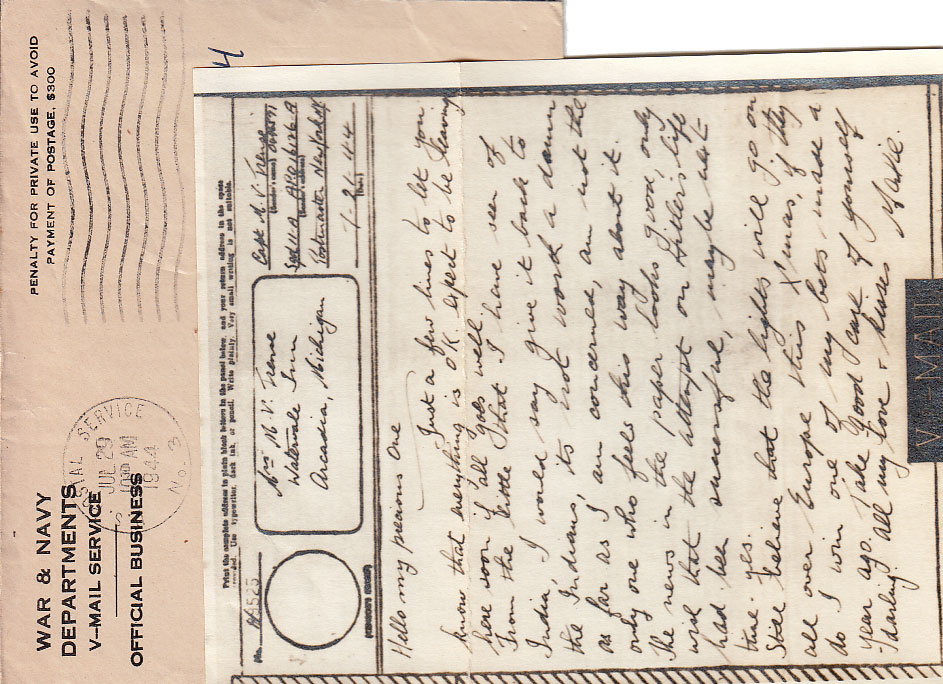 PENALTY FOR PRIVATE USE TO AVOID
PAYMENT OF POSTAGE, $300
WAR & NAVY
DEPARTMENTS
V-MAIL SERVICE
OFFICIAL BUSINESS
POSTAL SERVICE
JUL 29
1000 AM
1944
No. 3
4
Print the complete address in plain block letters in the panel below, and your return address in the space
provided. Use typewriter, dark ink, or pencil. Write plainly. Very small writing is not suitable.
No.
Mrs M V Trenne
Watervale Inn
Arcadia, Michigan
Capt M. V. Trenne
(Sender's name)
(Sender's address)
Postmaster New York NY
7-26-44
(Date)
Hello my precious one
Just a few lines to let you
know that everything is O.K. expect to be leaving
here soon if all goes well.
From the little that I have seen of
India, I would say give it back to
the Indians, its not worth a damn
as far as I am concerned, am not the
only one who feels this way about it.
The news in the paper looks good, only
wish that the attempt on Hitlers life
had been successful, maybe next
time yes.
Still believe that the lights will go on
all over Europe this Xmas, if they
do I win one of my bets made a
year ago. Take good care of yourself
darling. All my love & kisses
V-MAIL